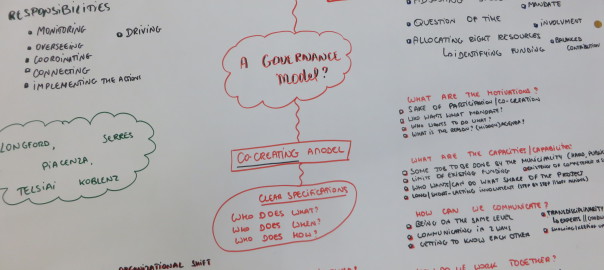 RESPONSIBILITIES
• MONITORING
• DRIVING
• OVERSEEING
• COORDINATING
• CONNECTING
• IMPLEMENTING THE ACTIONS
LONGFORD,
SERRES
PIACENZA,
TELSIAI
KOBLENZ
A GOVERNANCE
MODEL?
CO-CREATING A MODEL
CLEAR SPECIFICATIONS
WHO DOES WHAT?
WHO DOES WHEN?
WHO DOES HOW?
ORGANIZATIONAL SHIFT
• MANDATE
• QUESTION OF TIME
• INVOLVMENT
• ALLOCATING RIGHT RESOURCES
IDENTIFYING FUNDING
• BALANCED
CONTRIBUTION
WHAT ARE THE MOTIVATIONS?
SAKE OF PARTICIPATION/CO-CREATION
WHO WANTS WHAT MANDATE?
WHO WANTS TO DO WHAT?
WHAT IS THE REASON? (HIDDEN) AGENDA?
WHAT ARE THE CAPACITIES/CAPABILITIES
SOME JOB TO BE DONE BY THE MUNICIPALITY
LIMITS OF EXISTING FUNDING
WHO WANTS/CAN DO WHAT SHARE OF THE PROJECT
LONG/SHORT-LASTING INVOLVMENT
HOW CAN WE COMMUNICATE?
BEING ON THE SAME LEVEL
TRANSDISCIPLINARITY
COMMUNICATING IN 2 WAYS
GETTING TO KNOW EACH OTHER
WE WORK TOGETHER?